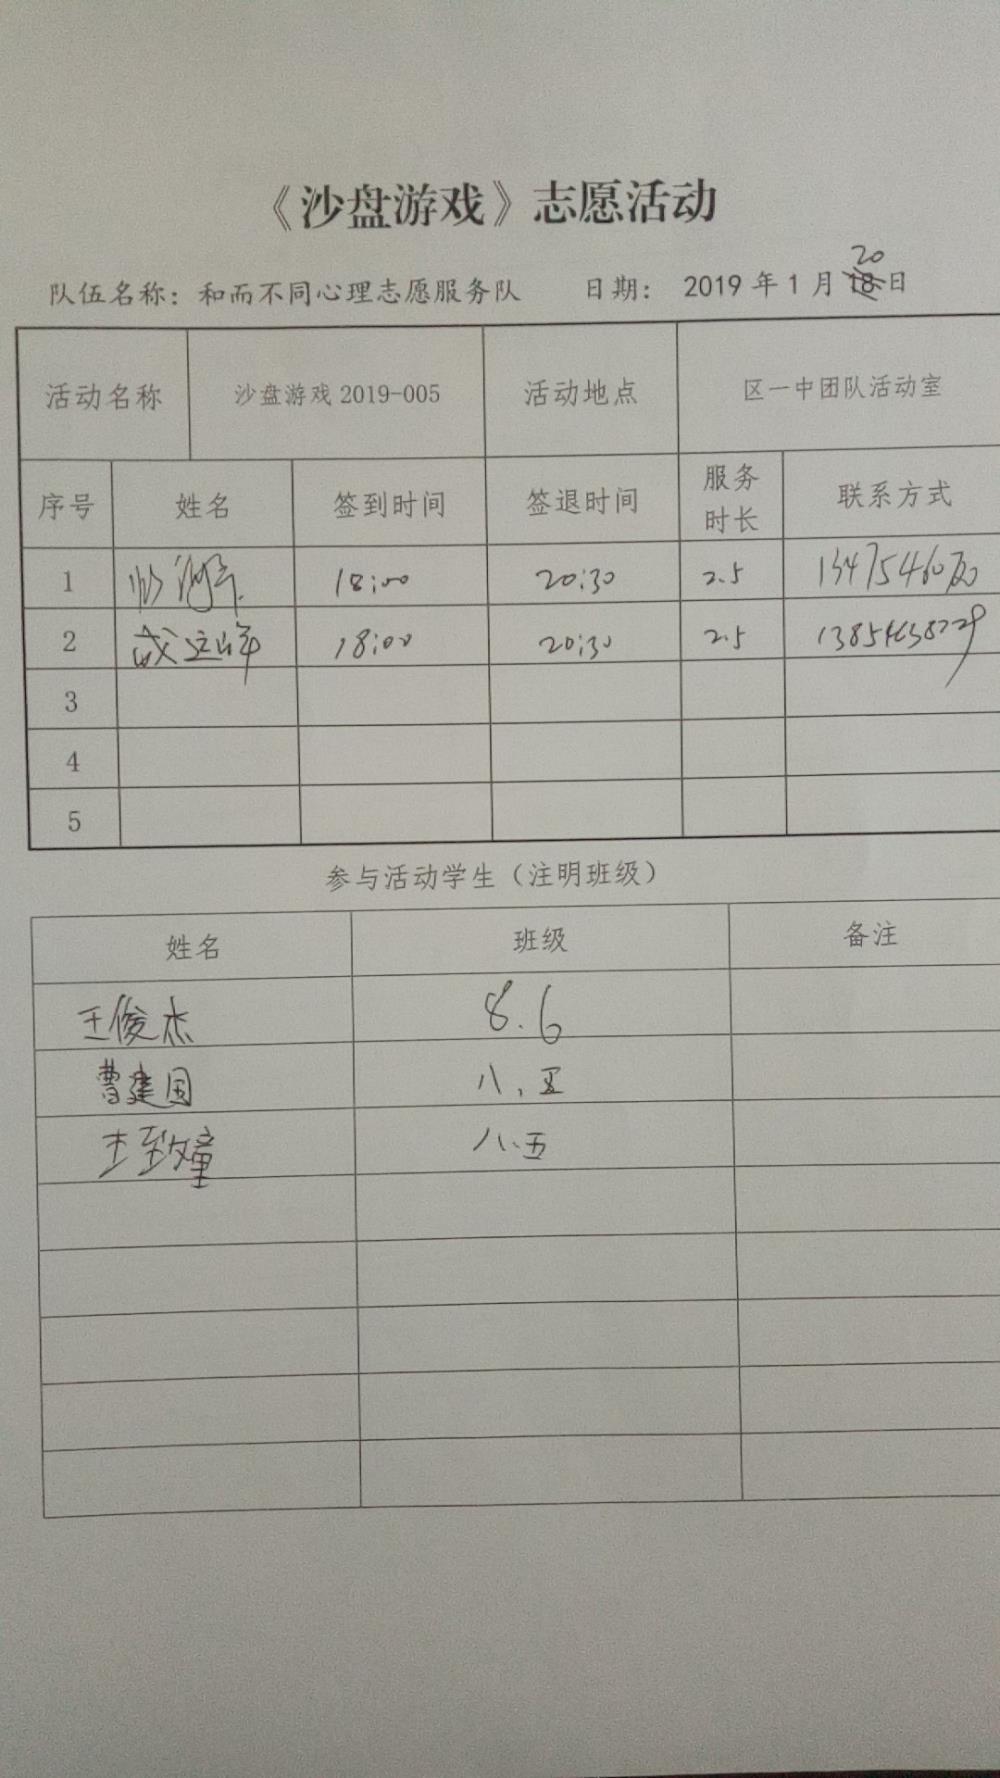 《沙盘游戏》志愿活动
队伍名称：和而不同心理志愿服务队 日期： 2019 年 1 月 20 日
活动名称 沙盘游戏 2019-005 活动地点 区一中团队活动室
序号 姓名 签到时间 签退时间 服务时长 联系方式
1 18:00 20:30 2.5
2 18:00 20:30 2.5
3
4
5
参与活动学生（注明班级）
姓名 班级 备注
王俊杰 8.6
曹建国 八.五
王致童 八.五